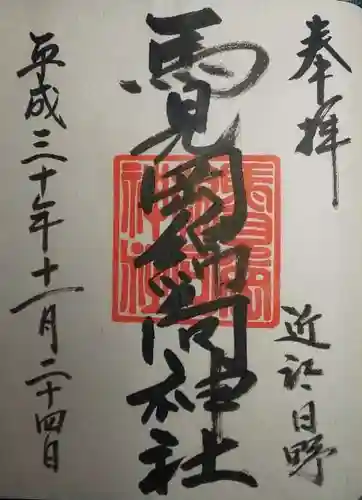 奉拝
近江日野
馬見岡綿向神社
平成三十年十一月二十四日